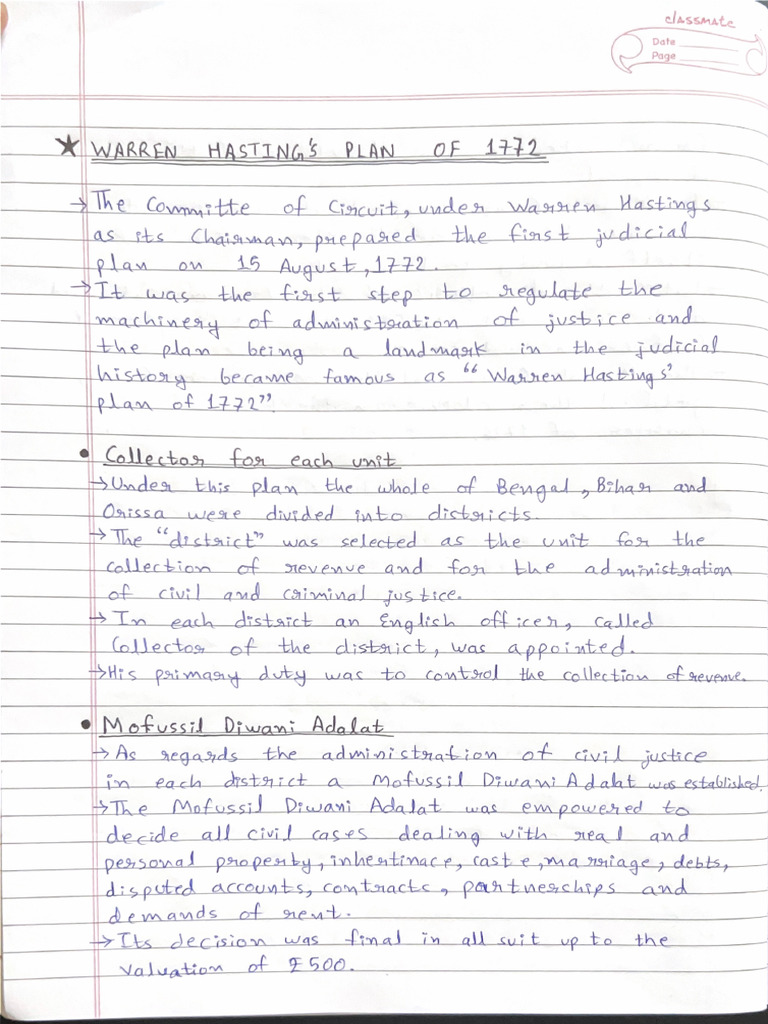 classmate
Date
Page
★ WARREN HASTING'S PLAN OF 1772
→ The Committe of Circuit, under Warren Hastings
as its Chairman, prepared the first judicial
plan on 15 August, 1772.
→ It was the first step to regulate the
machinery of administration of justice and
the plan being a landmark in the judicial
history became famous as "Warren Hastings'
plan of 1772".
• Collector for each unit
→ Under this plan the whole of Bengal, Bihar and
Orissa were divided into districts.
→ The "district" was selected as the unit for the
collection of revenue and for the administration
of civil and criminal justice.
→ In each district an English officer, called
Collector of the district, was appointed.
→ His primary duty was to control the collection of revenue.
• Mofussil Diwani Adalat
→ As regards the administration of civil justice
in each district a Mofussil Diwani Adalat was established.
→ The Mofussil Diwani Adalat was empowered to
decide all civil cases dealing with real and
personal property, inhertinace, caste, marriage, debts,
disputed accounts, contracts, partnerships and
demands of rent.
→ Its decision was final in all suit up to the
valuation of ₹500.